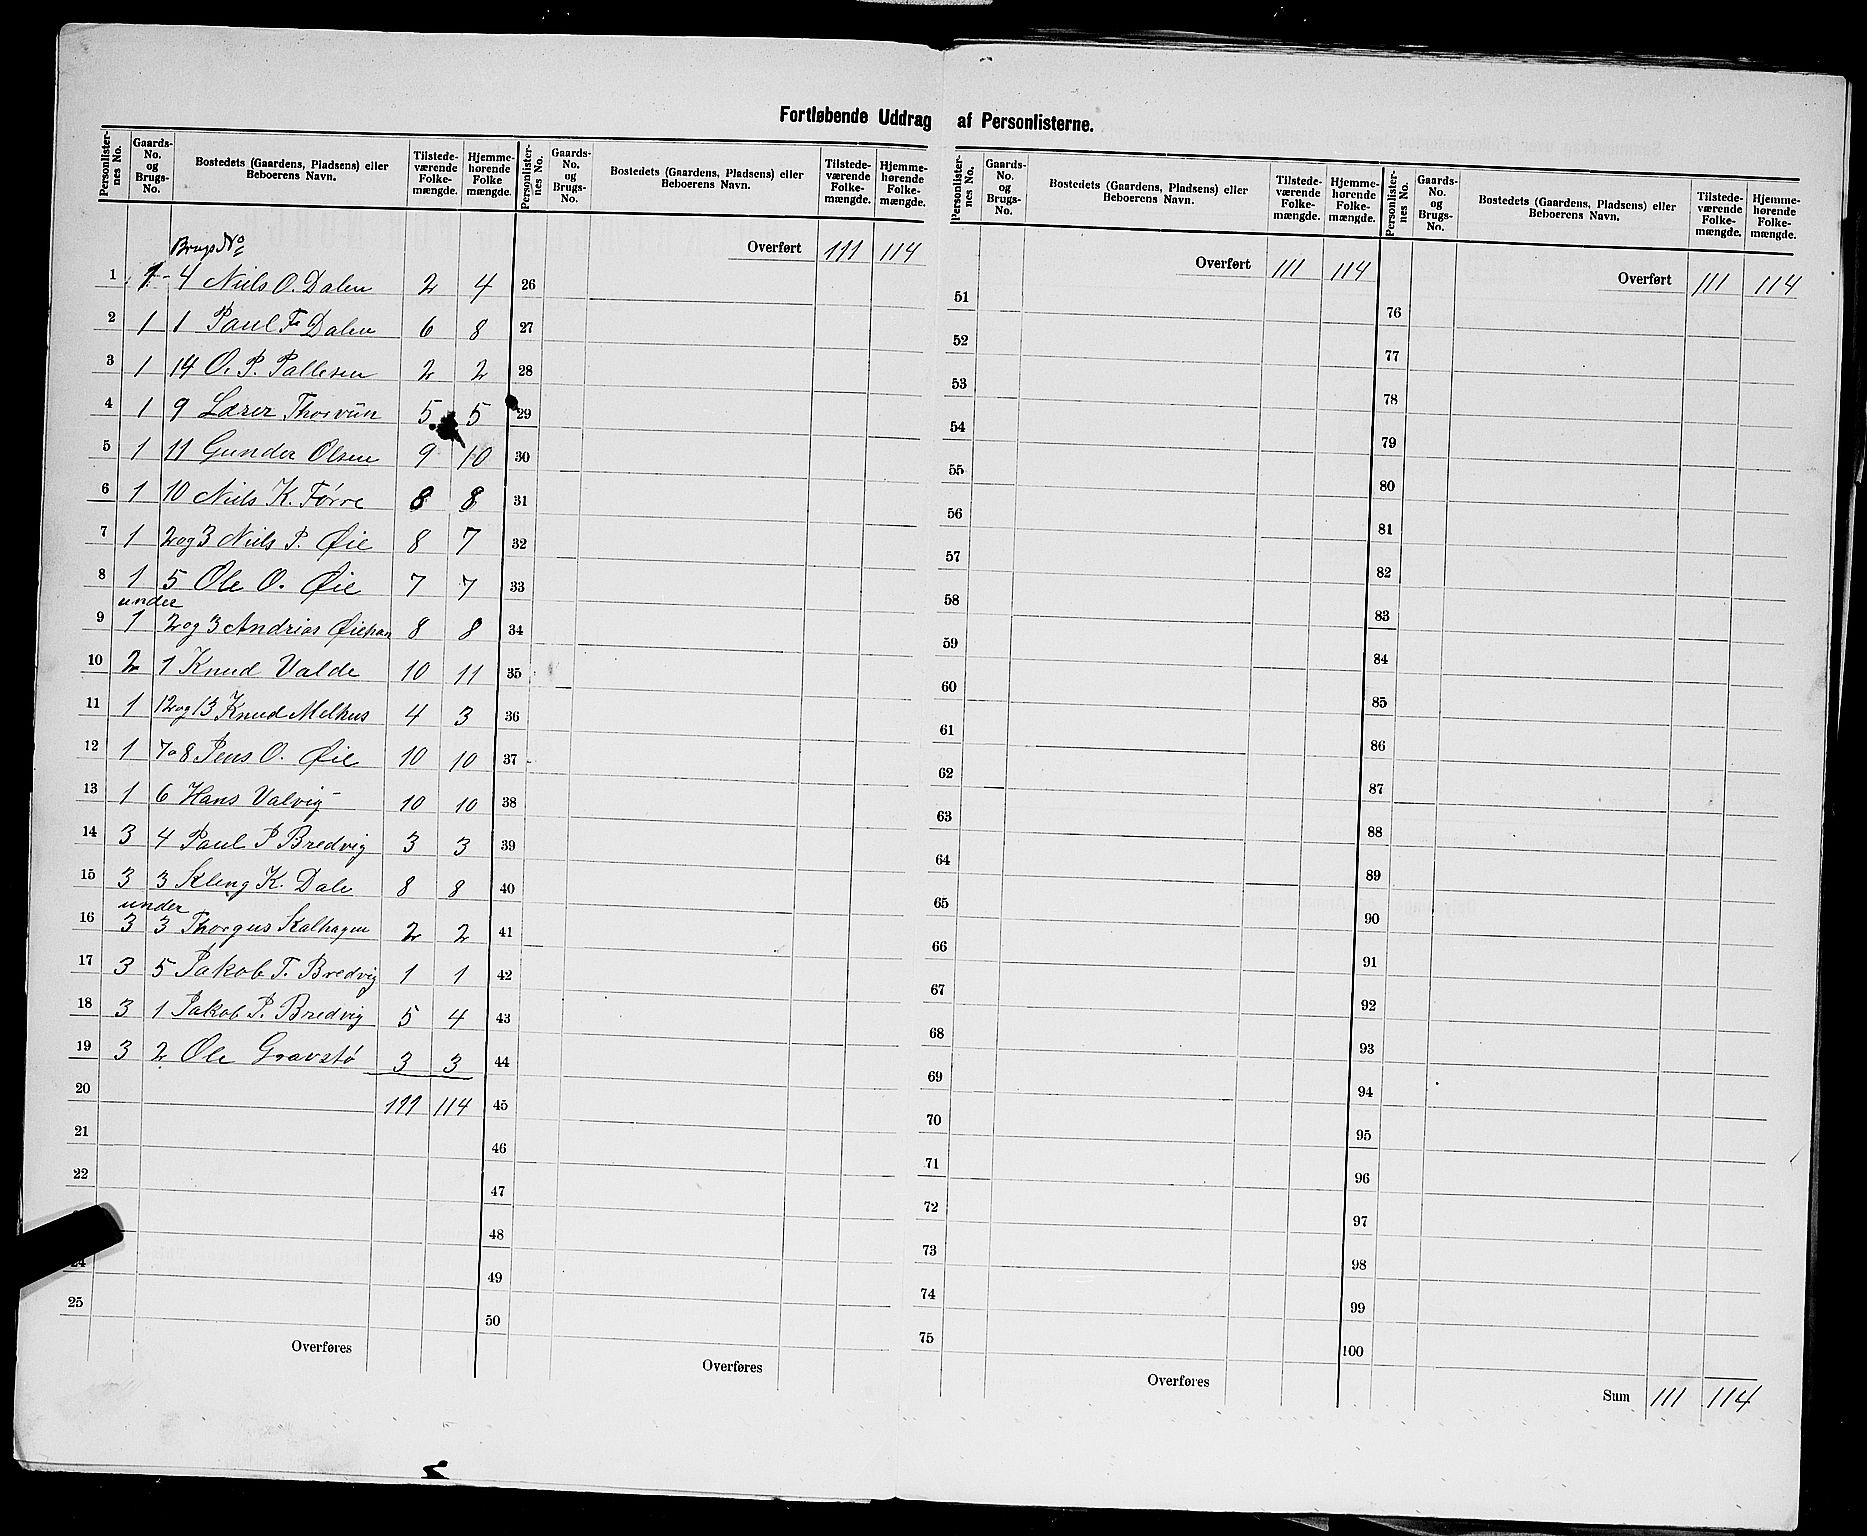 Fortløbende Uddrag af Personlisterne.
Personlister-nes No. Gaards-No. og Brugs-No. Bostedets (Gaardens, Pladsens) eller Beboerens Navn. Tilstede-værende Folke-mængde. Hjemme-hørende Folke mængde.
Personlister-nes No. Gaards-No. og Brugs-No. Bostedets (Gaardens, Pladsens) eller Beboerens Navn. Tilstede-værende Folke-mængde. Hjemme-hørende Folke-mængde.
Personlister-nes No. Gaards-No. og Brugs-No. Bostedets (Gaardens, Pladsens) eller Beboerens Navn. Tilstede-værende Folke-mængde. Hjemme-hørende Folke-mængde.
Personlister-nes No. Gaards-No. og Brugs-No. Bostedets (Gaardens, Pladsens) eller Beboerens Navn. Tilstede-værende Folke-mængde. Hjemme-hørende Folke-mængde.
Brugs No
1 1 - 4 Niels O. Dalen 2 4
2 1 1 Paul F Dalen 6 8
3 1 14 O. P. Pallesen 2 2
4 1 9 Lærer 5 5
5 1 11 Gunder Olsen 9 10
6 1 10 Niels K. Førre 8 8
7 1 2og3 Niels P. Øie 8 7
8 1 5 Ole O. Øie 7 7
under
9 1 2og3 Andrias 8 8
10 2 1 Knud Valde 10 11
11 1 12og13 Knud Melhus 4 3
12 1 7o8 Jens O. Øie 10 10
13 1 6 Hans Valvig 10 10
14 3 4 Paul P Bredvig 3 3
15 3 3 Kleng K. Dale 8 8
under
16 3 3 Thorgus Kalhagen 2 2
17 3 5 Jakob T. Bredvig 1 1
18 3 1 Jakob P. Bredvig 5 4
19 3 2 Ole Gravstø 3 3
20 111 114
21
22
24
25
Overføres
Overført 111 114
26
27
28
29
30
31
32
33
34
35
36
37
38
39
40
41
42
43
44
45
46
47
48
49
50
Overføres
Overført 111 114
51
52
53
54
55
56
57
58
59
60
61
62
63
64
65
66
67
68
69
70
71
72
73
74
75
Overføres
Overført 111 114
76
77
78
79
80
81
82
83
84
85
86
87
88
89
90
91
92
93
94
95
96
97
98
99
100
Sum 111 114